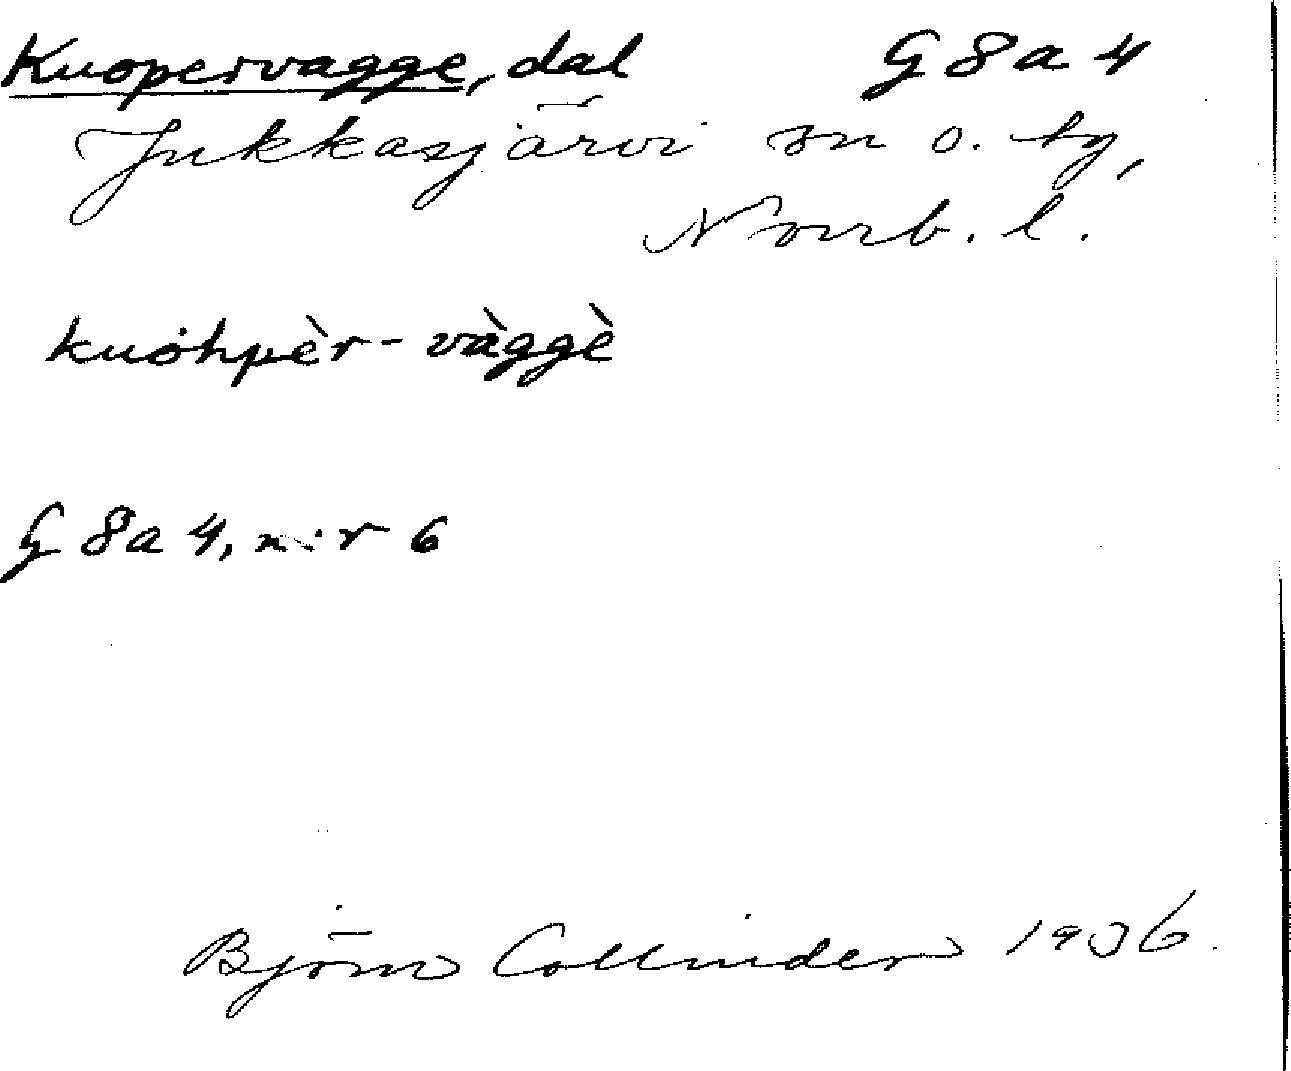 Kuopervagge, dal G 8 a 4
Jukkasjärvi sn o. tg,
Norrb. l.
kuȯhpèr-vàggè
G 8 a 4, n:r 6
Björn Collinder 1936.